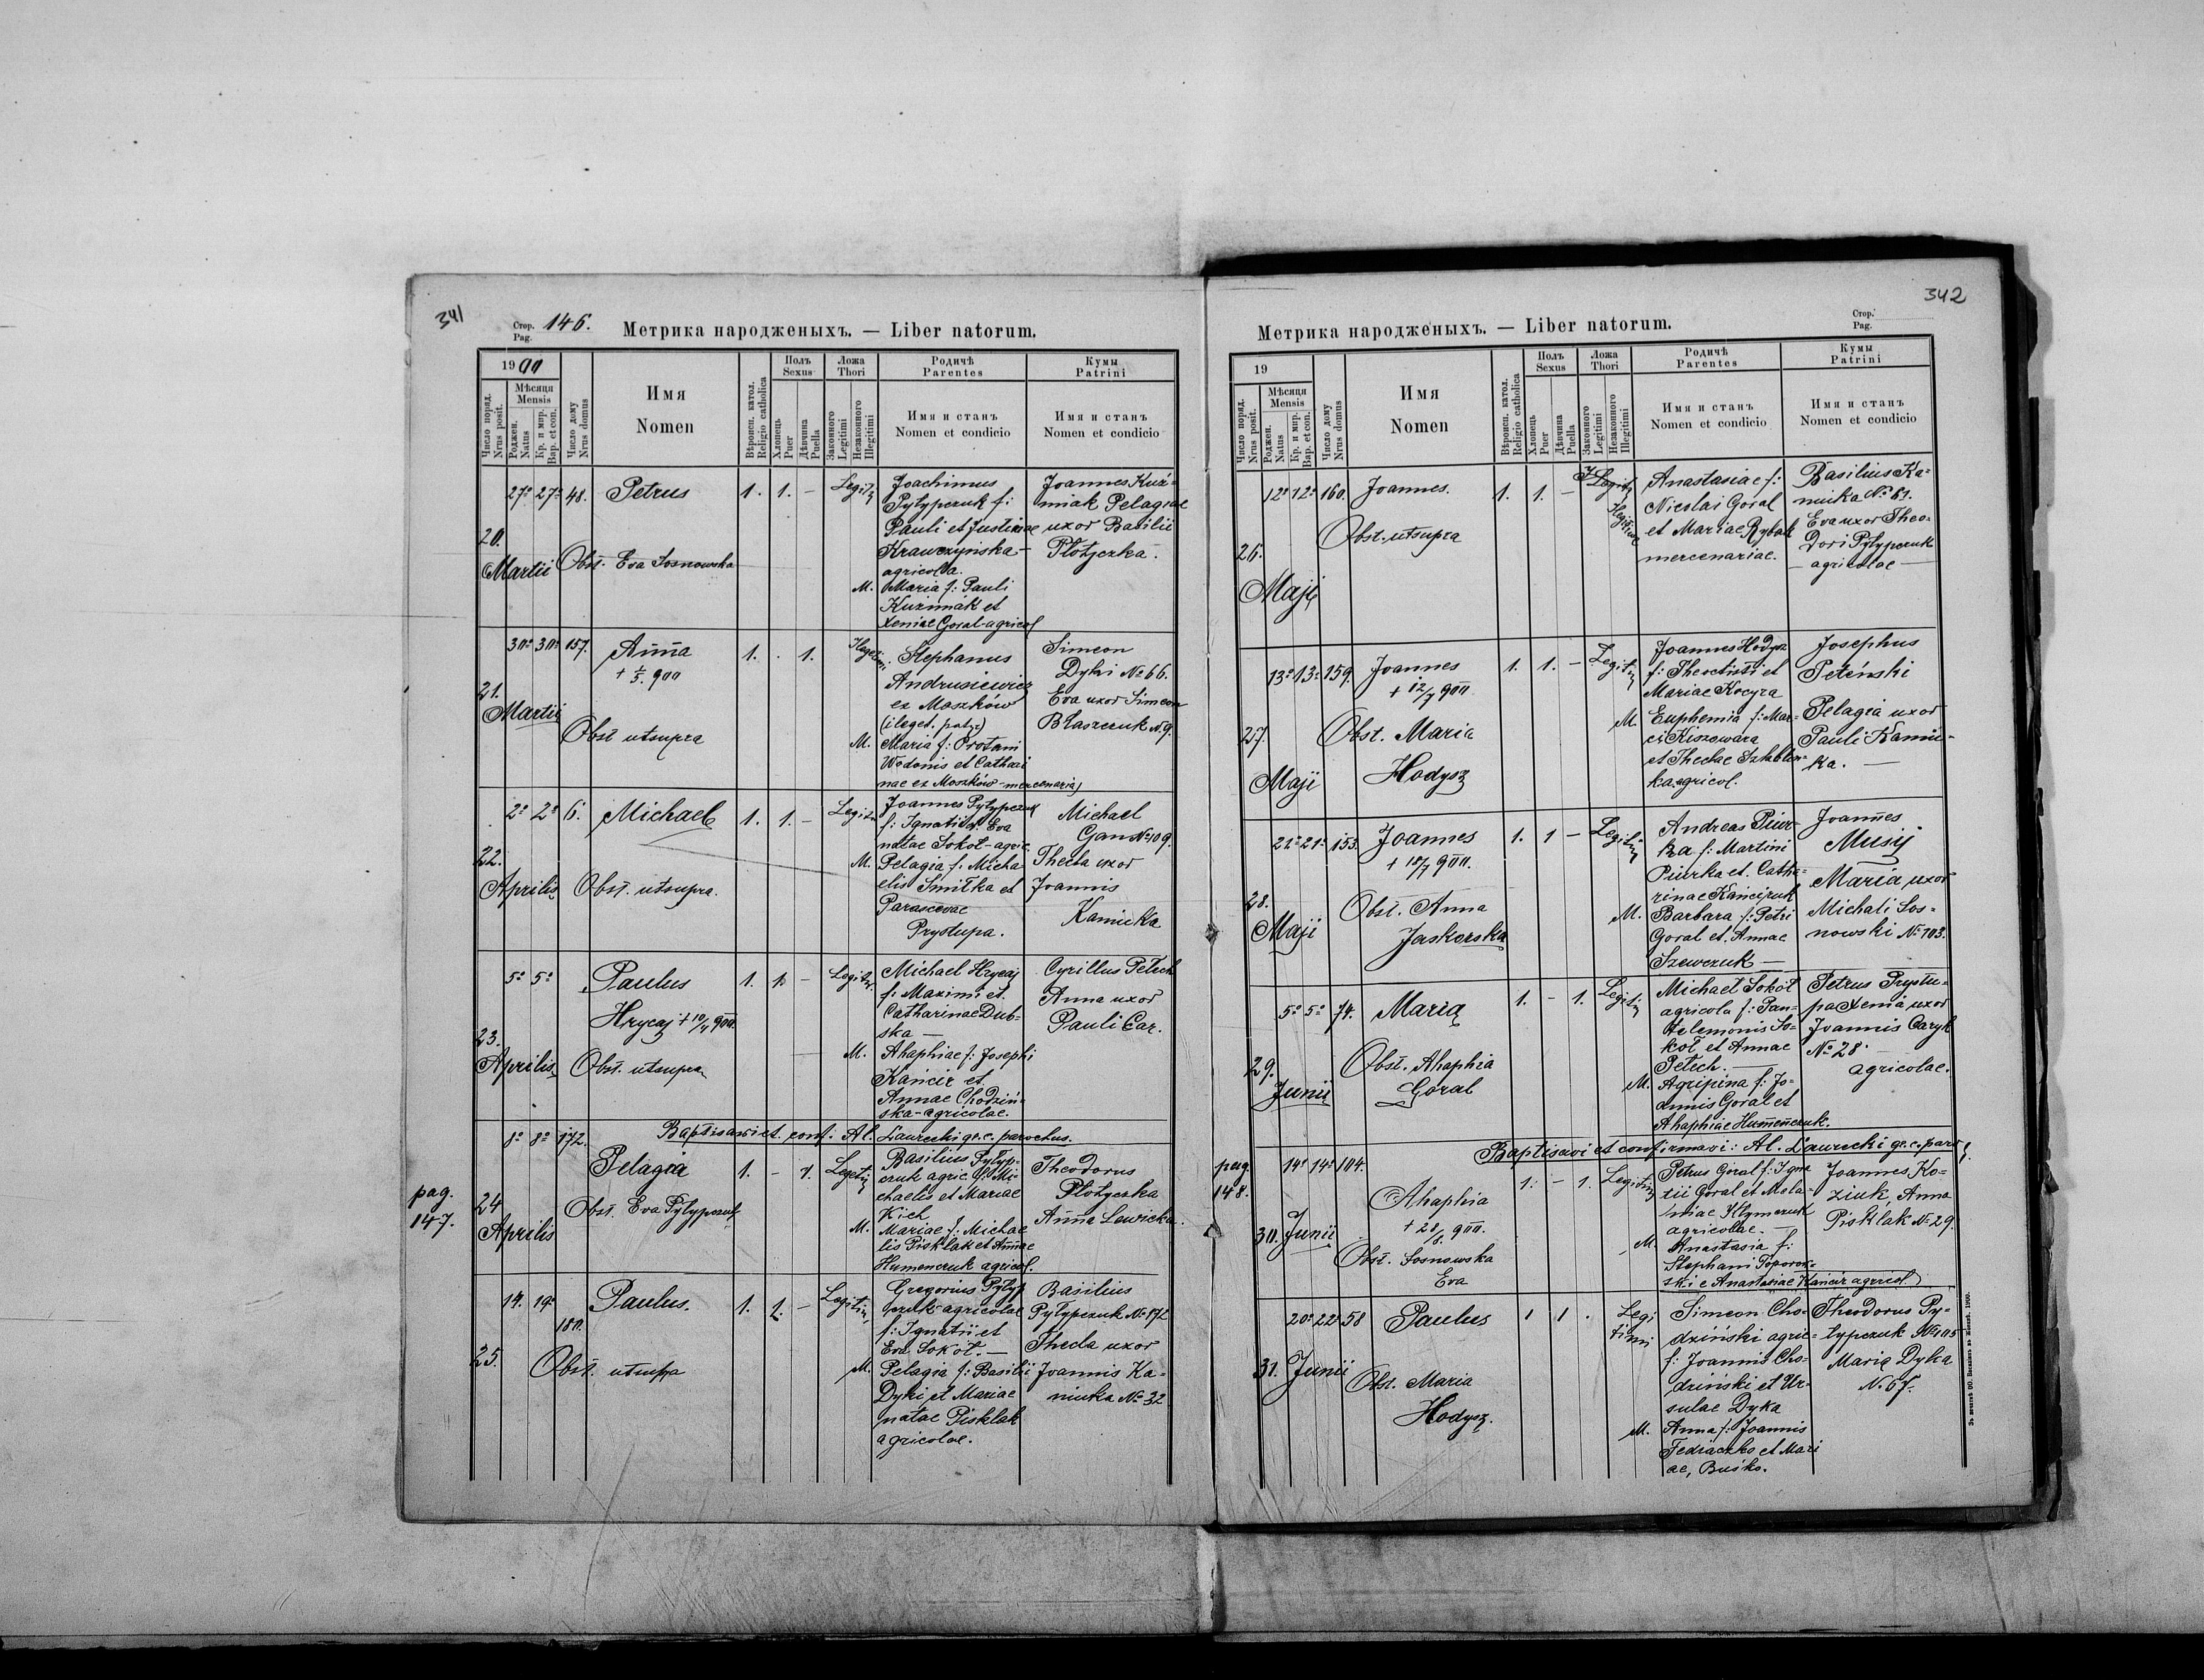 341
Стор. 146.
Pag.
Метрика народженыхъ. — Liber natorum.
1900
Число поряд. Nrus posit.
Мѣсяця Mensis
Роджен. Natus
Кр. и мир. Bap. et con.
Число дому Nrus domus
Имя
Nomen
Вѣроисп. катол. Religio catholica
Полъ Sexus
Хлопець Puer
Дѣвчина Puella
Ложа Thori
Законного Legitimi
Незаконного Illegitimi
Родичѣ Parentes
Имя и станъ
Nomen et condicio
Кумы Patrini
Имя и станъ
Nomen et condicio
20. Martii
27a 27a 48. Petrus 1. 1. –
Obst. Eva Sosnowska
Joachimus
Pylypczuk f:
Pauli et Justinae
Krawczyńska –
agricola.
M. Maria f: Pauli
Kuźmiak et
Xeniae Goral-agricol
Joannes Kuź-
miak Pelagiae
uxor Basilii
Plotyczka.
21. Martii
30a 30a 157. Anna 1. . 1.
+ 1/5. 900
Obst utsupra
Stephanus
Andrusiewicz
ex Moszków
M. Maria f: Protani
Wodonis et Cathari
nae ex Moszków-mercenaria)
Simeon
Dyki No 66.
Eva uxor Simeon
Błaszczuk N. 9.
22. Aprilis
2a 2a 6. Michael 1. 1. –
Obst. utsupra.
Joannes Pylypczuk
f: Ignatii et Eva
natae Sokoł-agric.
M. Pelagia f. Micha
elis Smiłka et
Parascevae
Prystupa.
Michael
Gan No 109.
Thecla uxor
Joannis
Kaniuka
23. Aprilis
5a 5a Paulus 1. 1. –
Hrycaj + 10/4 900.
Obst. utsupra
Michael Hrycaj
f. Maximi et
Catharinae Dub-
ska –
M. Ahaphiae f: Josephi
Kańcir et
Annae Chodziń-
ska-agricolae.
Cyrillus Petech
Anna uxor
Pauli Car.
Baptisavi et conf: Al. Laurecki gr.c. parochus.
pag. 147.
24 Aprilis
8a 8a 172.
Pelagia 1. – 1.
Obst. Eva Pylypczuk
Basilius Pylyp-
czuk agric f: Mi-
chaelis et Mariae
Kich
M. Mariae f: Michae
lis Pisklak et Annae
Humenczuk agricol.
Theodorus
Plotyczka
Anna Lewicka.
25.
14. 19.
180. Paulus. 1. 1. –
Obst. utsupra
Gregorius Pylyp
czuk agricolae
f: Ignatii et
Eva Sokoł. –
M. Pelagia f: Basilii
Dyki et Mariae
natae Pisklak
agricolae.
Basilius
Pylypczuk No 172
Thecla uxor
Joannis Ka-
niuka No 32
342
Стор.
Pag.
Метрика народженыхъ. — Liber natorum.
19
Число поряд. Nrus posit.
Мѣсяця Mensis
Роджен. Natus
Кр. и мир. Bap. et con.
Число дому Nrus domus
Имя
Nomen
Вѣроисп. катол. Religio catholica
Полъ Sexus
Хлопець Puer
Дѣвчина Puella
Ложа Thori
Законного Legitimi
Незаконного Illegitimi
Родичѣ Parentes
Имя и станъ
Nomen et condicio
Кумы Patrini
Имя и станъ
Nomen et condicio
26. Maji
12a 12a 160. Joannes. 1. 1. –
Obst. utsupra
Anastasiae f:
Nicolai Goral
et Mariae Rybak
mercenariae.
Basilius Ka-
niuka No 61.
Eva uxor Theo-
dori Pylypczuk
– agricolae –
27. Maji
13a 13a 159. Joannes 1. 1. –
+ 12/7 900.
Obst. Maria
Hodysz
Joannes Hodysz
f: Theoctisti et
Mariae Kocyra
M. Euphemia f: Mar-
ci Kiszowara
et Theclae Sztablen-
ka agricol.
Josephus
Peteński
Pelagia uxor
Pauli Kaniu-
ka. –
28. Maji
21a 21a 153. Joannes 1. 1 –
+ 18/7 900.
Obst. Anna
Jaskorska
Andreas Piur-
ka f: Martini
Piurka et Catha-
rinae Kańcizuk
M. Barbara f: Petri
Goral et Annae
Szewczuk –
Joannes
Musij
Maria uxor
Michali Sos-
nowski No 103.
29. Junii
5a 5a 74. Maria 1. – 1.
Obst. Ahaphia
Goral
Michael Sokół
agricola f: Pan-
telemonis So-
koł et Annae
Petech. –
M. Agripina f: Jo-
annis Goral et
Ahaphiae Humenczuk.
Petrus Prystu-
pa Xenia uxor
Joannis Caryk
No 28. –
agricolae.
Baptisavi et confirmavi: Al. Laurecki gr.c. par
pag. 148.
30. Junii
14a 14a 104. Ahaphia 1. – 1.
+ 28/8. 900.
Obst. Sosnowska
Eva
Petrus Goral f: Igna
tii Goral et Mela-
niae Klymczuk
agricolae. –
M. Anastasia f:
Stephani Toporow-
ski e Anastasiae Kańcir agricol.
Joannes Ko-
ziuk, Anna
Pisklak No 29.
31. Junii
20a 22a 58 Paulus 1 1 .
Legi
timi
Obst. Maria
Hodysz.
Simeon Cho-
dziński agric-
f: Joannis Cho-
dziński et Ur-
sulae Dyka
M. Anna f: Joannis
Fediaczko et Mari
ae, Buśko.
Theodorus Py-
lypczuk No 105
Maria Dyka
N. 67.